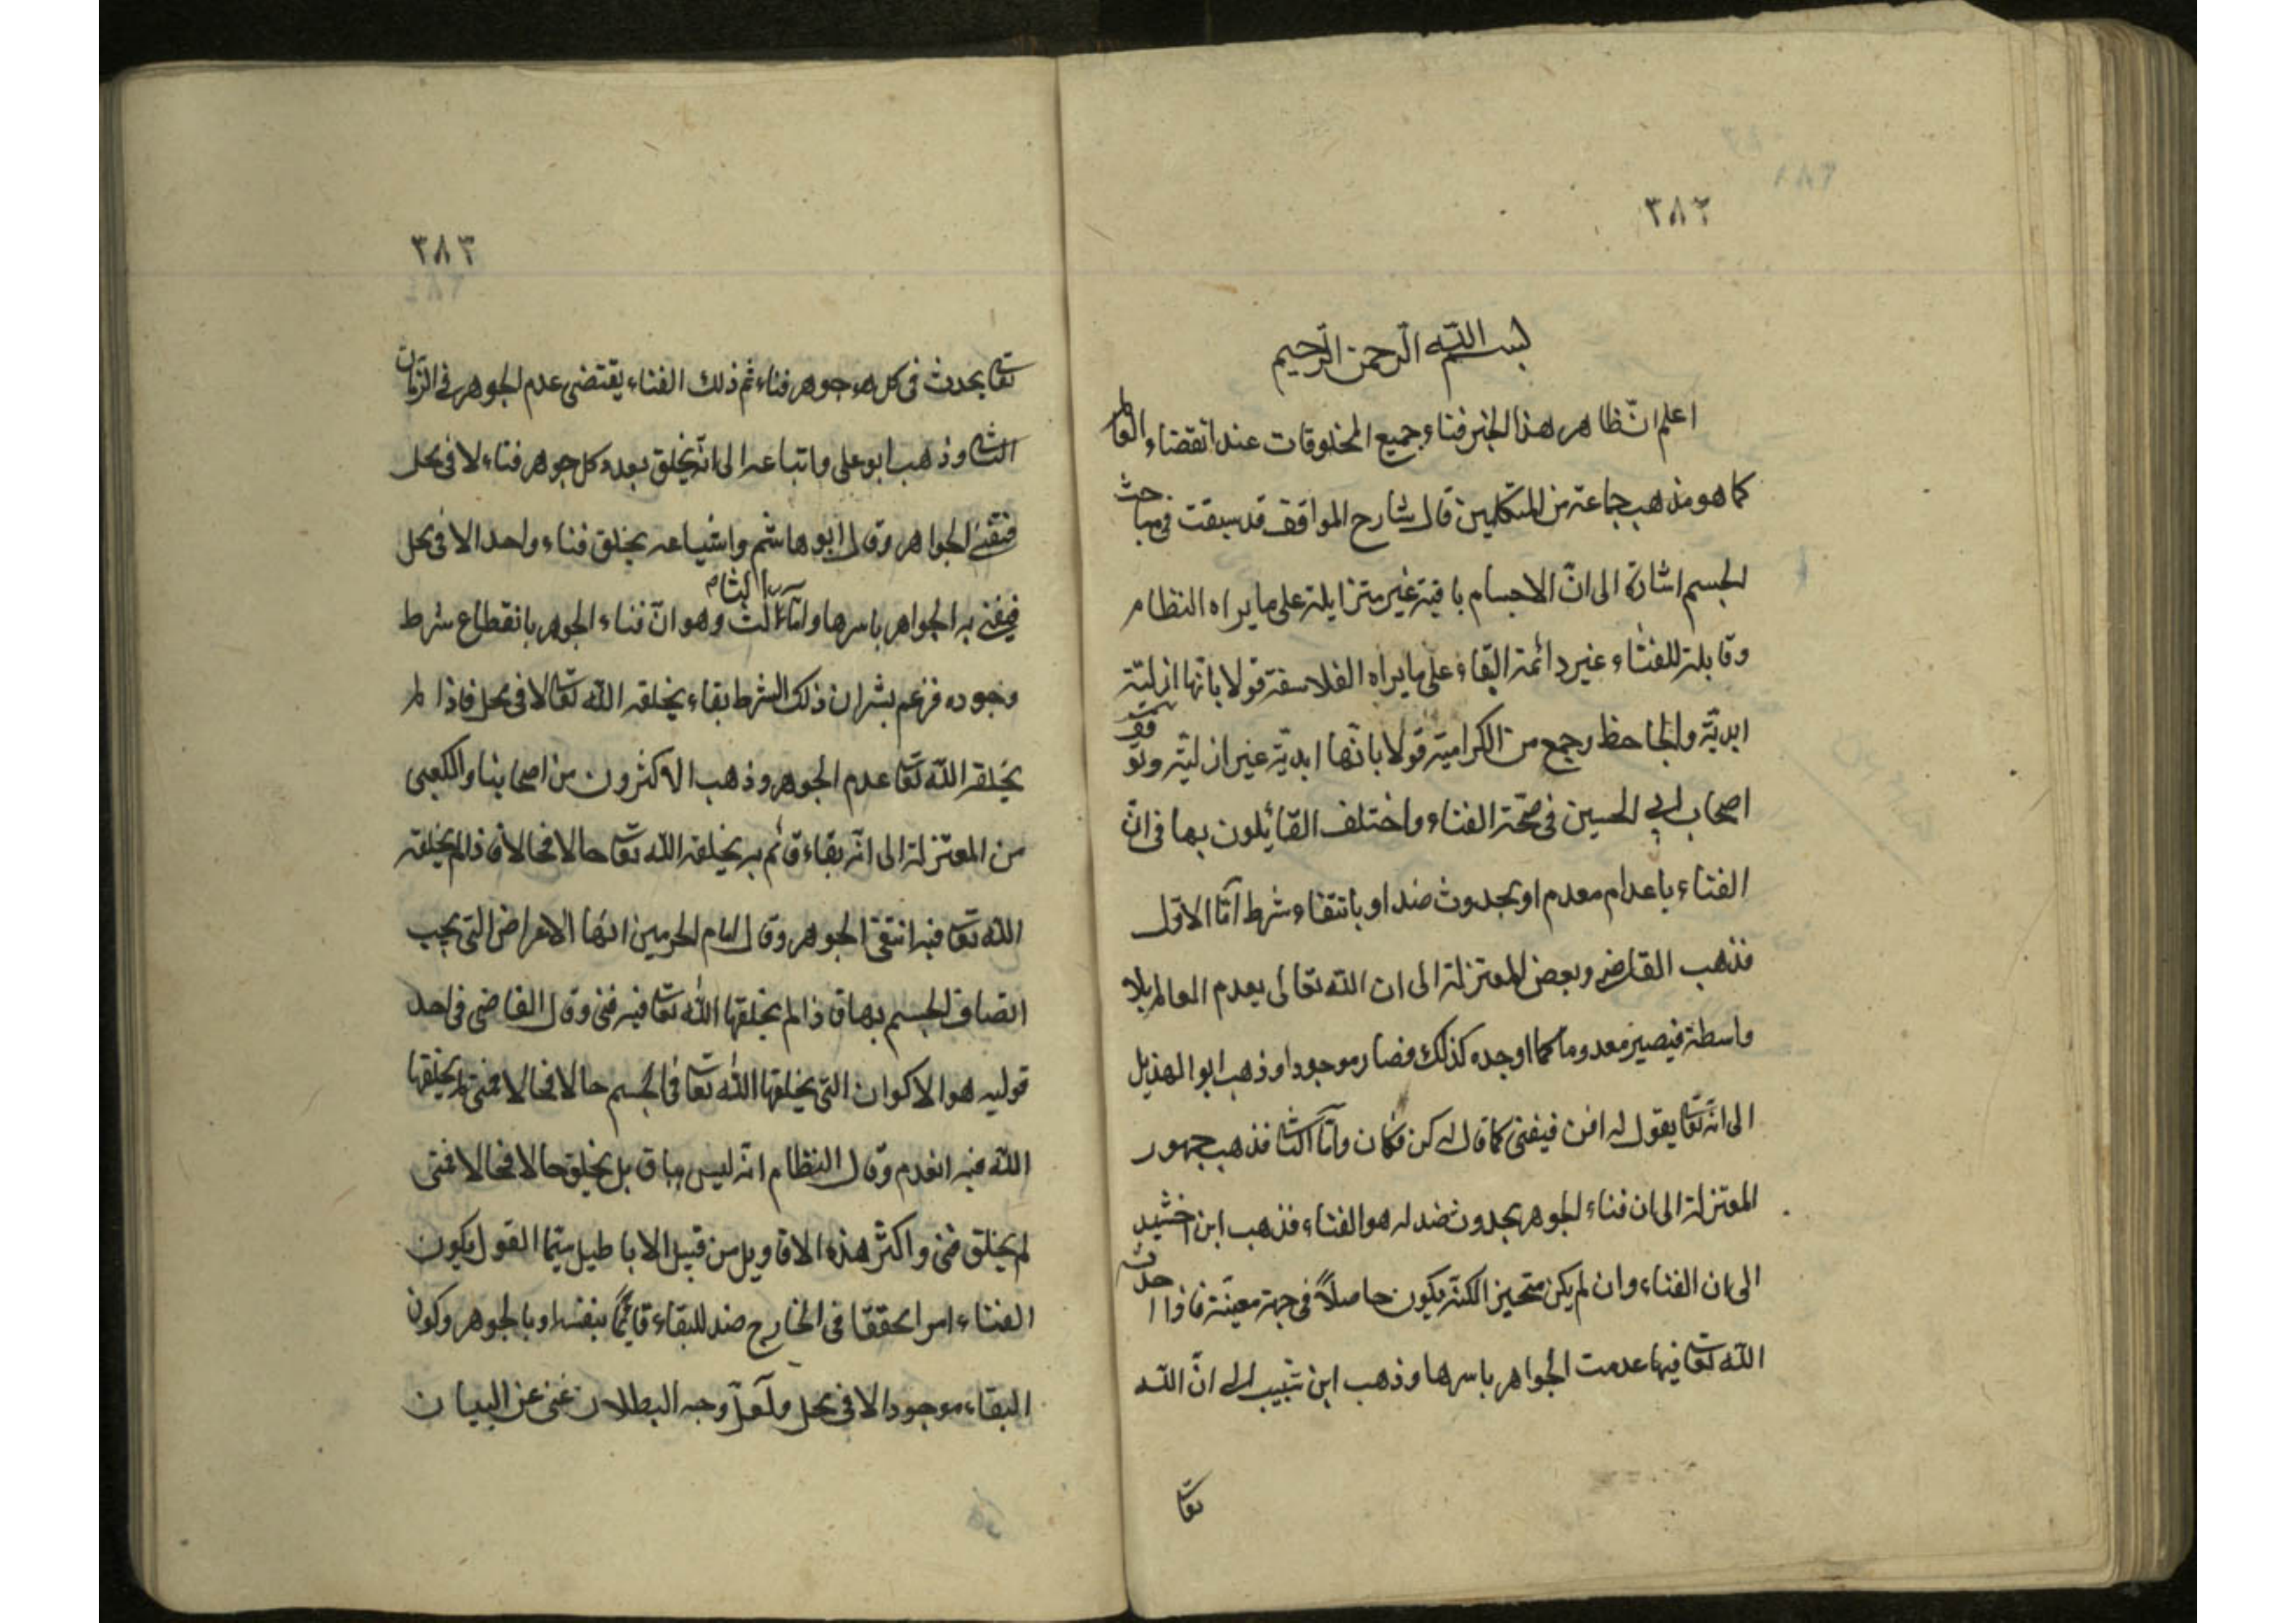 ٣٨٢
بسم الله الرحمن الرحيم
اعلم انّ ظاهر هذا الخبر فناء جميع المخلوقات عند انقضاء العالم
كما هو مذهب جماعة من المتكلمين قال شارح المواقف قد سبقت في مباحث
الجسم اشارة الى انّ الاجسام باقية غير متزايلة على ما يراه النظام
وقابلة للفناء غير دائمة البقاء على ما يراه الفلاسفة قولا بانها ازليّة
ابديّة والجاحظ وجمع من الكرامية قولا بانّها ابديّة غير ازليّة وتوقف
اصحاب ابي الحسين في صحّة الفناء واختلف القائلون بها في انّ
الفناء باعدام معدم او بحدوث ضد او بانتفاء شرط امّا الاوّل
فذهب القاضي وبعض المعتزلة الى ان الله تعالى يعدم العالم بلا
واسطة فيصير معدوما كما اوجده كذلك فصار موجودا وذهب ابو الهذيل
الى انّه تعا يقول له افن فيفنى كما قال له كن فكان وامّا الثا فذهب جمهور
المعتزلة الى ان فناء الجوهر بحدوث ضد له هو الفناء فذهب ابن اخشيد
الى ان الفناء وان لم يكن متحيز الكنّه يكون حاصلاً في جهة معيّنة فاذا احدث
الله تعا فيها عدمت الجواهر باسرها وذهب ابن شبيب الى انّ الله
تعا
٣٨٣
تعا يحدث في كل جوهر فناء ثم ذلك الفناء يقتضى عدم الجوهر في الزمان
الثا وذهب ابو على واتباعه الى انّه يخلق بعدد كل جوهر فناء لا في محل
فتفنى الجواهر وقال ابو هاشم واشياعه يخلق فناء واحد الا في محل
فيفنى به الجواهر باسرها وامّا الثالث وهو انّ فناء الجوهر بانقطاع شرط
وجوده فزعم بشر ان ذلك الشرط بقاء يخلقه الله تعا لا في محل فاذا لم
يخلقه الله تعا عدم الجوهر وذهب الاكثرون من اصحابنا والكعبى
من المعتزلة الى انّه بقاء قائم به يخلقه الله تعا حالا فحالا فاذا لم يخلقه
الله تعا فيه انتفى الجوهر وقال امام الحرمين انّها الاعراض التي يجب
اتصاف الجسم بها فاذا لم يخلقها الله تعا فيه فنى وقال القاضى في احد
قوليه هو الاكوان التي يخلقها الله تعا في الجسم حالا فحالا فمتى لم يخلقها
الله فيه انعدم وقال النظام انّه ليس بباق بل يخلق حالا فحالا فمتى
لم يخلق فنى واكثر هذه الاقاويل من قبيل الاباطيل سيّما القول بكون
الفناء امرا محققا في الخارج ضد للبقاء قائمًا بنفسه او بالجوهر وكون
البقاء موجودا لا في محل ولعلّ وجه البطلان غنى عن البيان